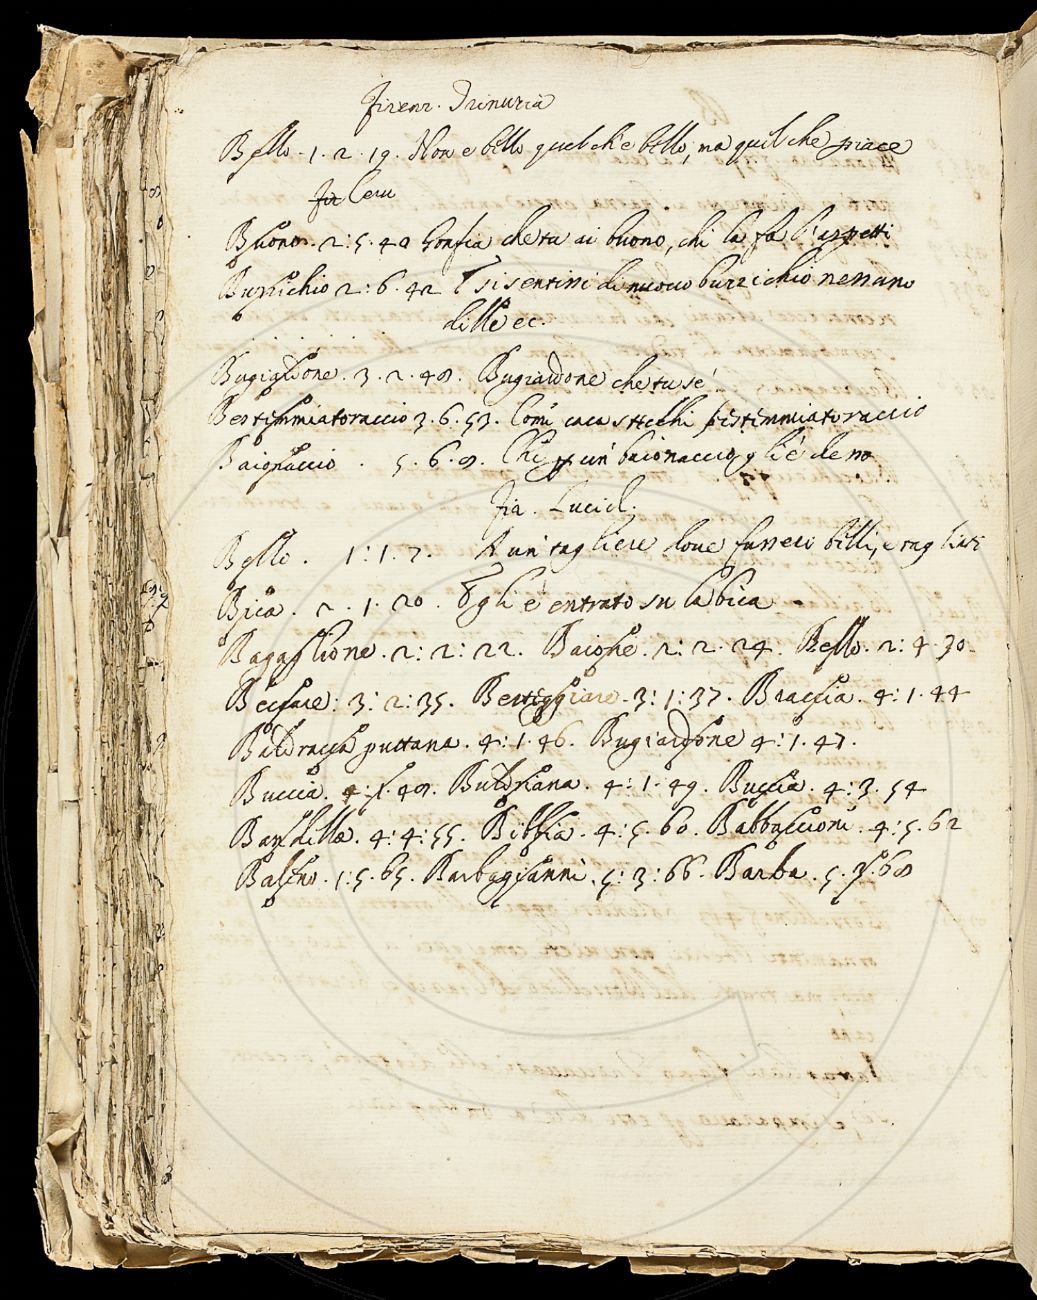 Firenz. Trinuzia
Bello. 1. 2. 19. Non e bello quel ch'e bello, ma quel che piace
Buono. 2: 5. 40 che tu ai buono, chi la fa l'aspetti
Buzzichio 2: 6. 42 si sentissi di nuovo buzzichio nessuno
dille ec.
Bugiardone. 3. 2. 48. Bugiardone che tu se'
Bestemmiatoraccio 3. 6. 53. Com' caca stecchi bestemmiatoraccio
Baionaccio. 5. 6. 8. Chi un' baionaccio gli è de no
Fir. Lucid.
Bello. 1: 1. 7. A un' tagliere dove fussero belli, e tagliati
Bica. 2. 1. 20. Egli è entrato su la bica
Bagaglione. 2: 2: 22. Baione. 2: 2. 24. Bello. 2: 4. 30.
Beccare: 3: 2: 35. Berteggiare. 3: 1: 37. Braccia. 4: 1. 44
Baldracca puttana. 4: 1. 46. Bugiardone 4: 1. 47.
Buccia. 4: 1. 48. Buldriana. 4: 1. 49. Buccia. 4: 3. 54
Bandelle. 4: 4: 55. Bibbia. 4: 5. 60. Babbaccioni. 4: 5. 62
Baleno. 1: 5. 65. Barbagianni. 5: 3: 66. Barba. 5. 7. 68